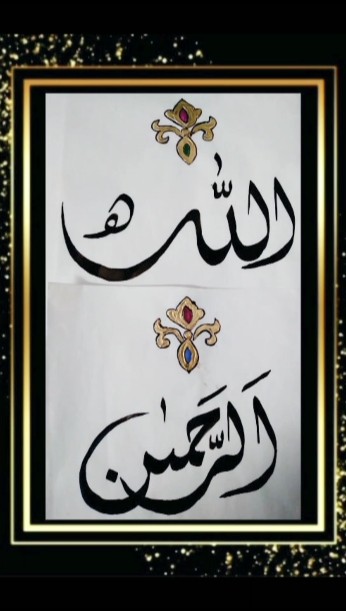 اللّٰه
اَلرَّحَمٰن